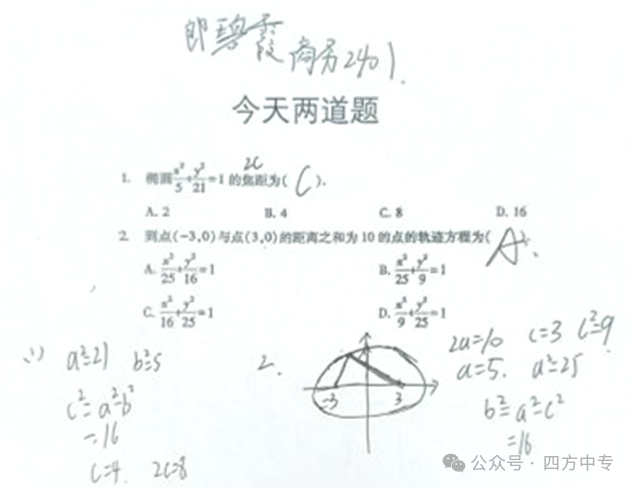 郎碧霞 商务2401.
今天两道题
1. 椭圆x²/5+y²/21=1的焦距为( C ).
2c
A. 2 B. 4 C. 8 D. 16
2. 到点(-3,0)与点(3,0)的距离之和为10的点的轨迹方程为( A ).
A. x²/25+y²/16=1 B. x²/25+y²/9=1
C. x²/16+y²/25=1 D. x²/9+y²/25=1
(1) a²=21 b²=5
c²=a²-b²
=16
c=4 2c=8
2.
-3 3
2a=10 c=3 c²=9
a=5. a²=25
b²=a²-c²
=16
公众号·四方中专